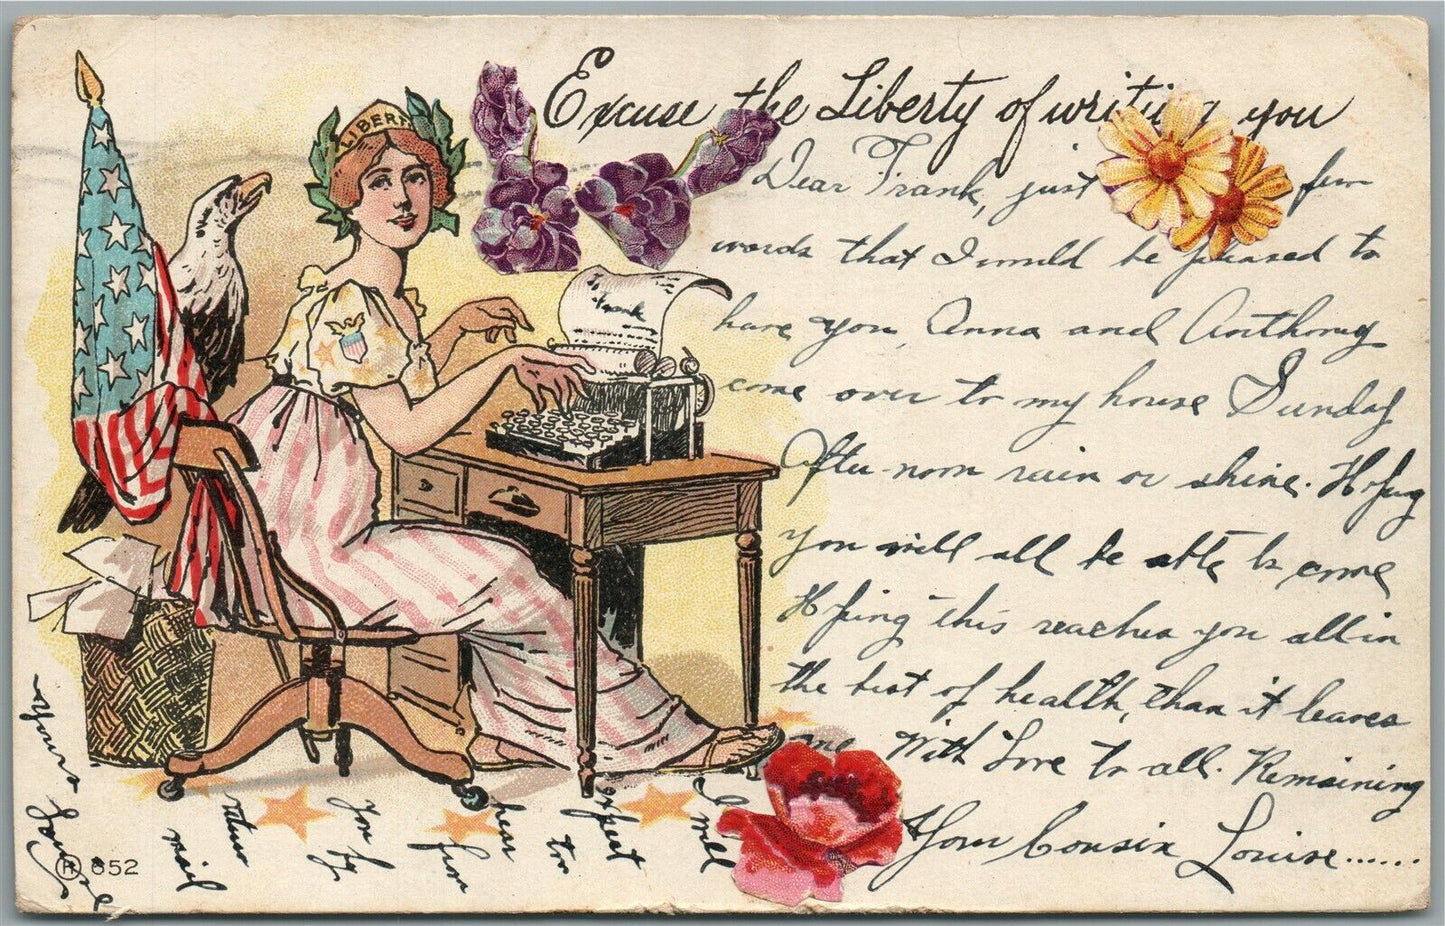 Excuse the Liberty of writing you
Dear Frank, just few
words that I would be pleased to
have you, Anna and Anthony
come over to my house Sunday
After-noon rain or shine. Hoping
you will all be able to come
Hoping this reaches you all in
the best of health, than it leaves
me. With Love to all. Remaining
Your Cousin Louise......
I will
expect
to
hear
from
You by
return
mail
Yours Louise
LIBERT
Frank
R 852